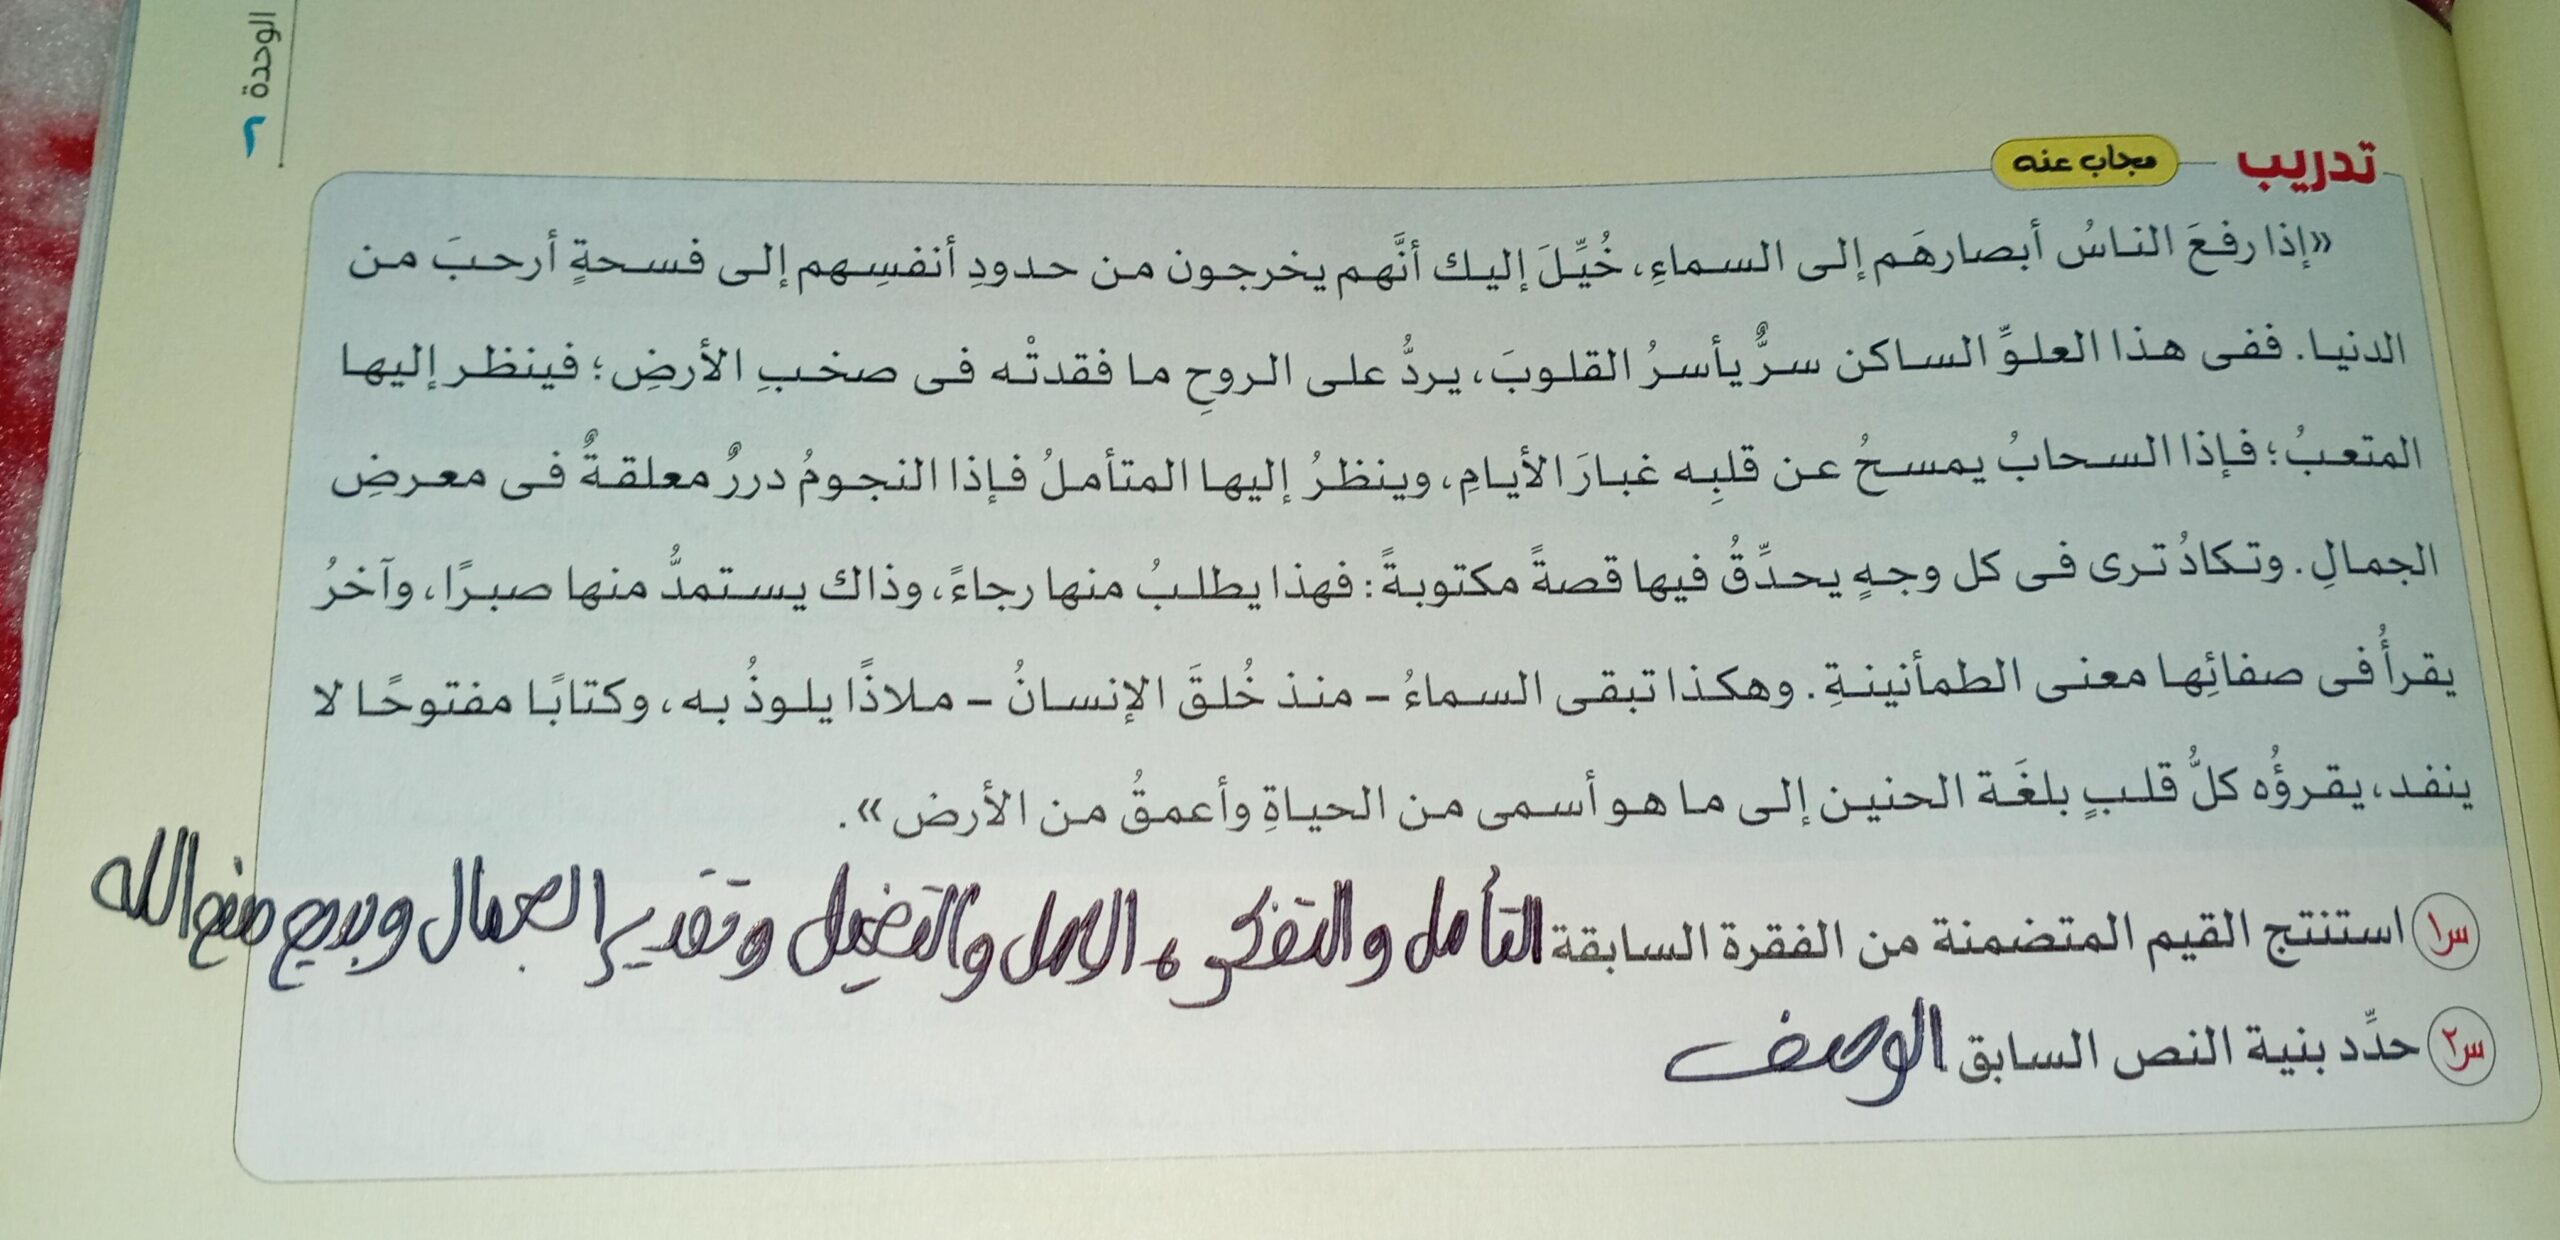 الوحدة ٢
تدريب مجاب عنه
«إذا رفعَ الناسُ أبصارهَم إلى السماءِ، خُيِّلَ إليك أنَّهم يخرجون من حدودِ أنفسِهم إلى فسحةٍ أرحبَ من
الدنيا. ففى هذا العلوِّ الساكن سرٌّ يأسرُ القلوبَ، يردُّ على الروحِ ما فقدتْه فى صخبِ الأرضِ؛ فينظر إليها
المتعبُ؛ فإذا السحابُ يمسحُ عن قلبِه غبارَ الأيامِ، وينظرُ إليها المتأملُ فإذا النجومُ دررٌ معلقةٌ فى معرضِ
الجمالِ. وتكادُ ترى فى كل وجهٍ يحدِّقُ فيها قصةً مكتوبةً: فهذا يطلبُ منها رجاءً، وذاك يستمدُّ منها صبرًا، وآخرُ
يقرأُ فى صفائِها معنى الطمأنينةِ. وهكذا تبقى السماءُ - منذ خُلقَ الإنسانُ - ملاذًا يلوذُ به، وكتابًا مفتوحًا لا
ينفد، يقرؤُه كلُّ قلبٍ بلغَة الحنين إلى ما هو أسمى من الحياةِ وأعمقُ من الأرض».
س١ استنتج القيم المتضمنة من الفقرة السابقة التأمل والتفكر، الامل و وتقدير الجمال وبديع صنع الله
س٢ حدِّد بنية النص السابق الوصف